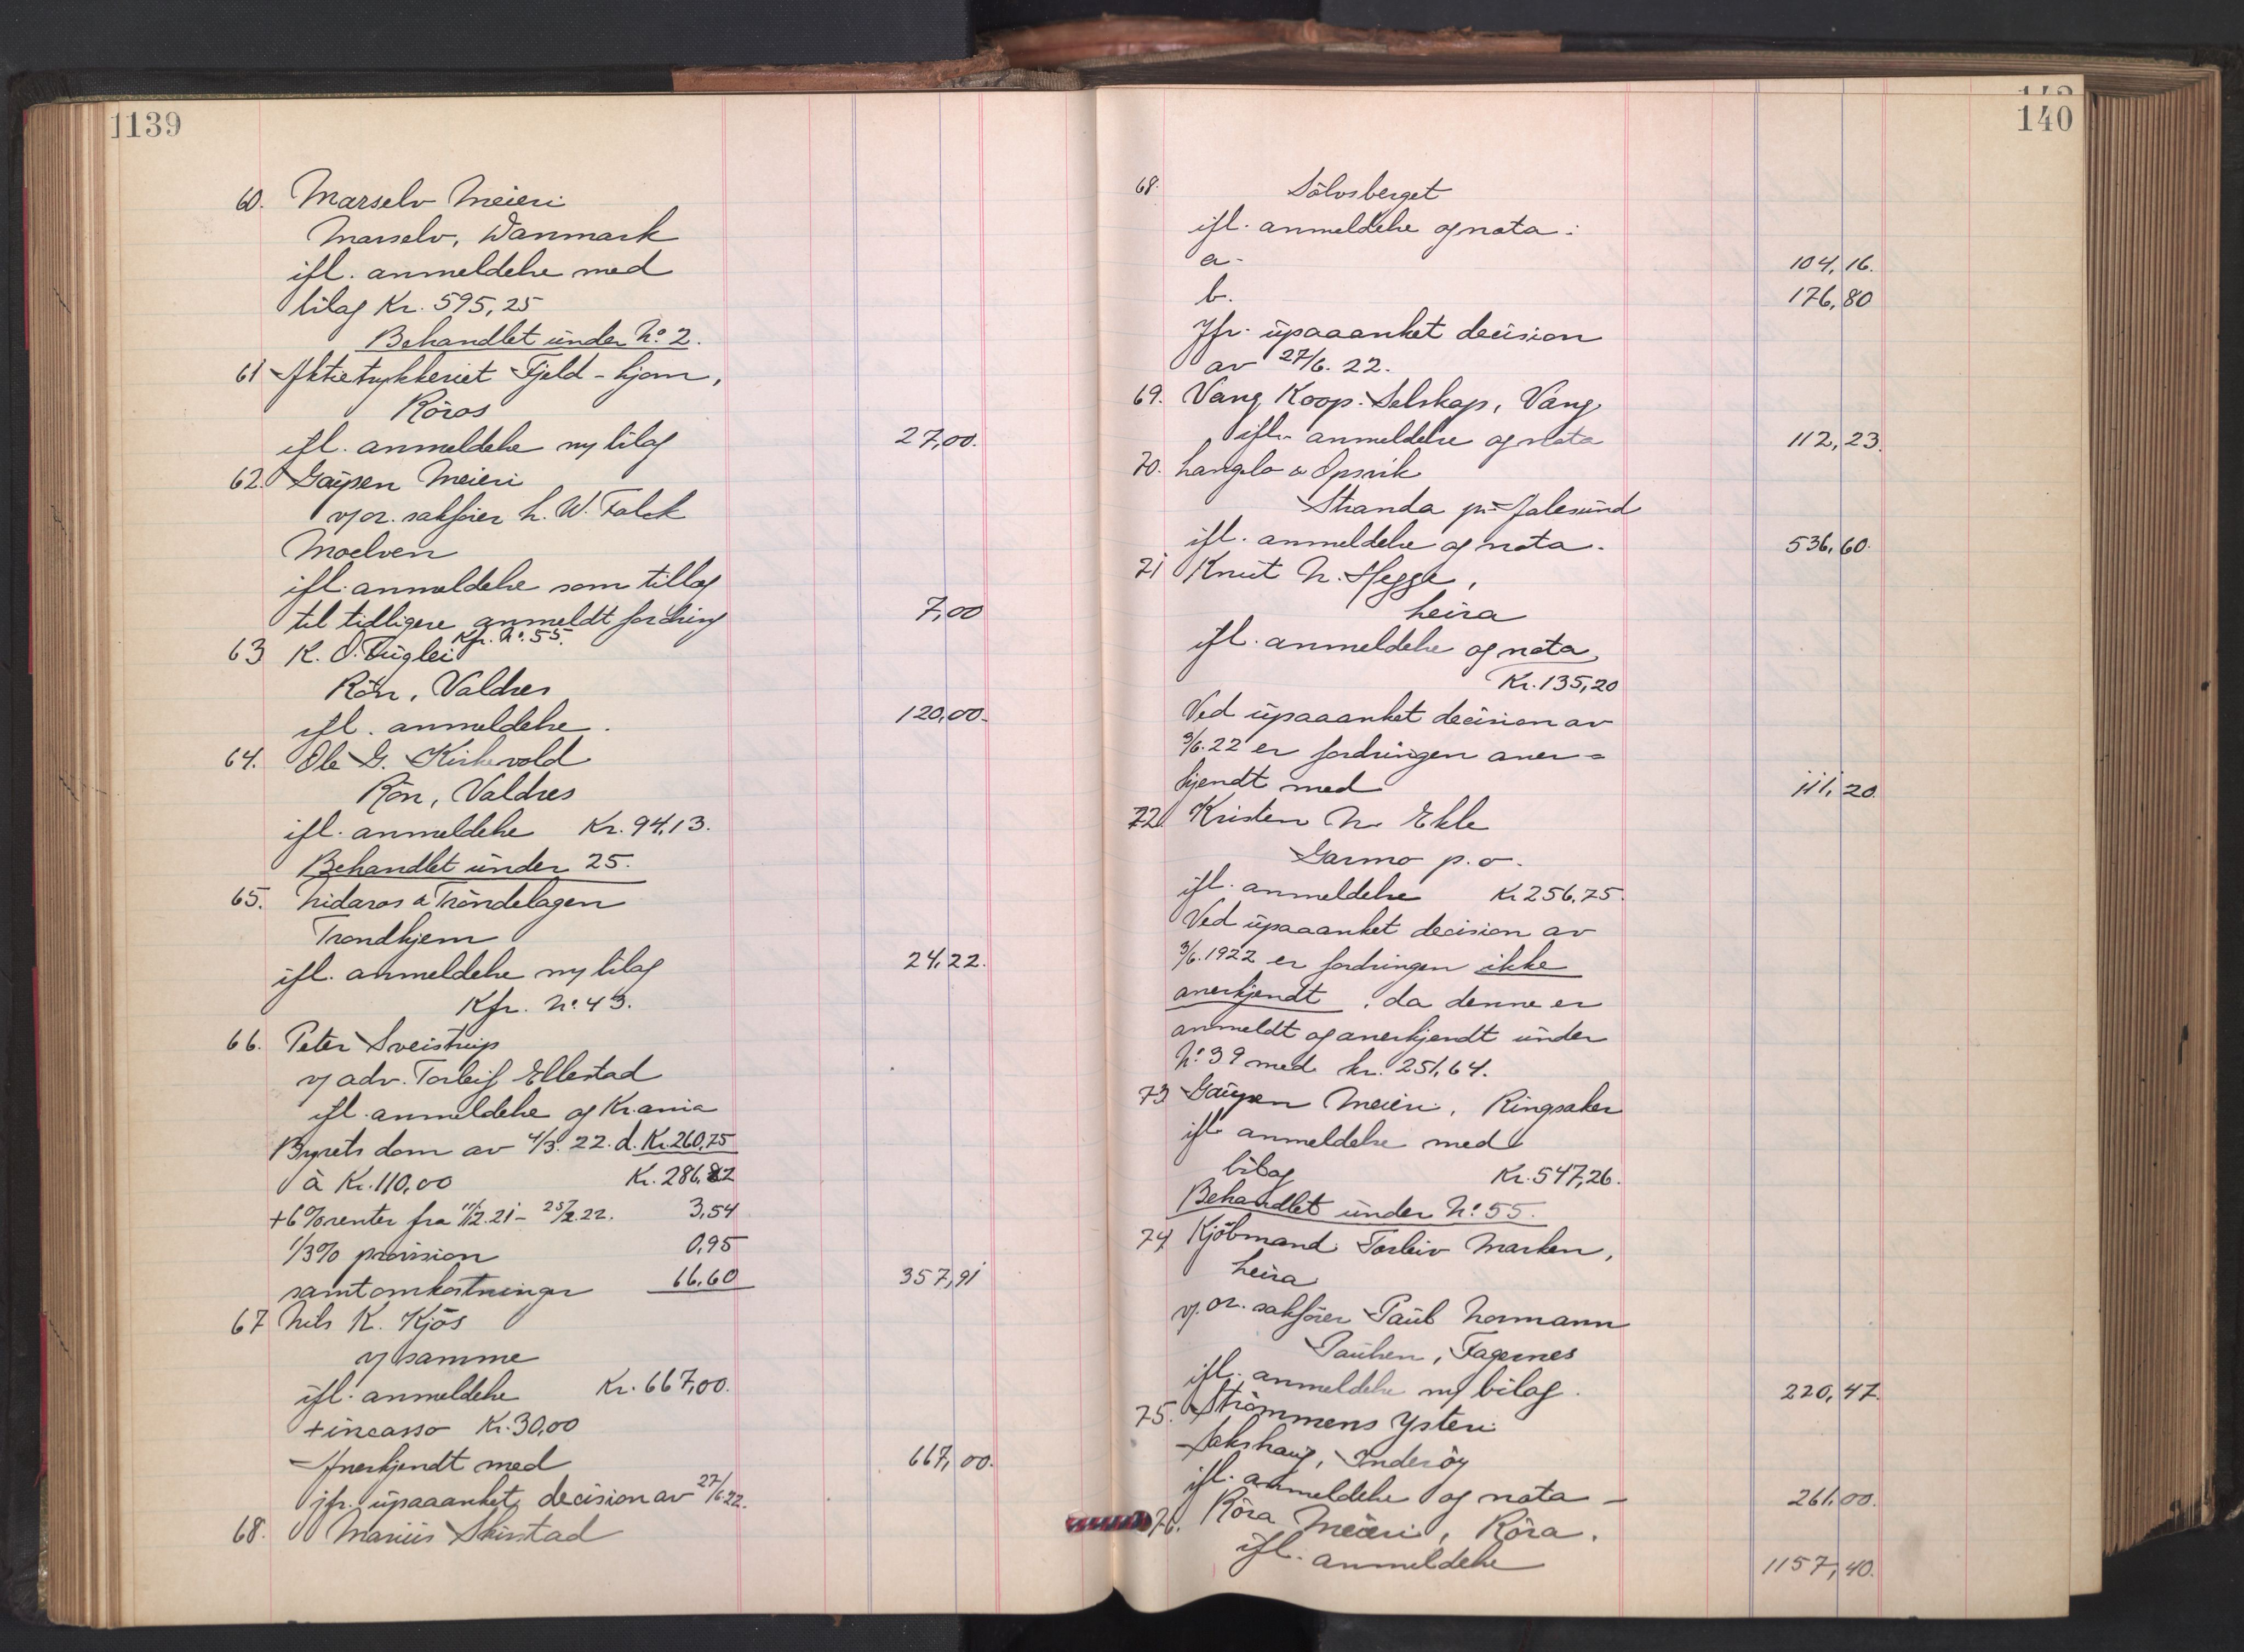 1139
60. Marselv Meieri
Marselv, Danmark
ifl. anmeldelse med
bilag Kr. 595,25
Behandlet under No. 2.
61 Aktietrykkeriet Fjeld-Ljom,
Röros
ifl. anmeldelse m/ bilag 27,00.
62. Gaupen Meieri
v/ or. sakfører L. W. Falck
Moelven
ifl. anmeldelse som tillæg
til tidligere anmeldt fordring 7,00
Kfr. No. 55.
63 K. O. Fuglei
Rön, Valdres
ifl. anmeldelse. 120,00.
64. Ole G. Kirkevold
Rön, Valdres
ifl. anmeldelse Kr. 94,13.
Behandlet under 25.
65. Nidaros & Tröndelagen
Trondhjem
ifl. anmeldelse m/ bilag 24,22.
Kfr. No. 43.
66. Peter Sveistrup
v/ adv. Torleif Ellestad
ifl. anmeldelse og Kr.ania
Byrets dom av 4/3. 22. d. Kr. 260,75
à Kr. 110,00 Kr. 286,82
+ 6% renter fra 12.21 - 25/2.22. 3,54
1/3% provision 0,95
samt omkostninger 66,60 357,91
67 Nils K. Kjös
v/ samme
ifl. anmeldelse Kr. 667,00.
+ incasso Kr. 30,00
Anerkjendt med 667,00.
jfr. upaaanket decision av 27/6.22.
68. Marius Skirstad
140
68. Sölvsberget
ifl. anmeldelse og nota:
a. 104,16.
b. 176,80
Jfr. upaaanket decision
av 27/6. 22.
69. Vang Koop. Selskap, Vang
ifl. anmeldelse og nota 112,23.
70. Langlo & Opsvik
Stranda pr. Aalesund
ifl. anmeldelse og nota. 536,60.
71 Knut N. Hegge,
Leira
ifl. anmeldelse og nota,
Kr. 135,20
Ved upaaanket decision av
3/6.22 er fordringen aner=
kjendt med 111,20.
72. Kristen N. Ekle
Garmo p.o.
ifl. anmeldelse Kr 256,75.
Ved upaaanket decision av
3/6.1922 er fordringen ikke
anerkjendt, da denne er
anmeldt og anerkjendt under
No. 39 med kr. 251,64.
73 Gaupen Meieri, Ringsaker
ifl. anmeldelse med
bilag Kr. 547,26.
Behandlet under No. 55.
74 Kjöbmand Torleiv Marken,
Leira
v/ or. sakfører Paul Normann
Paulsen, Fagernes
ifl. anmeldelse m/ bilag. 220,47.
75. Strömmens Ysteri
Sakshaug, Inderöy
ifl. anmeldelse og nota - 261,00.
76. Röra Meieri, Röra.
ifl. anmeldelse 1157,40.